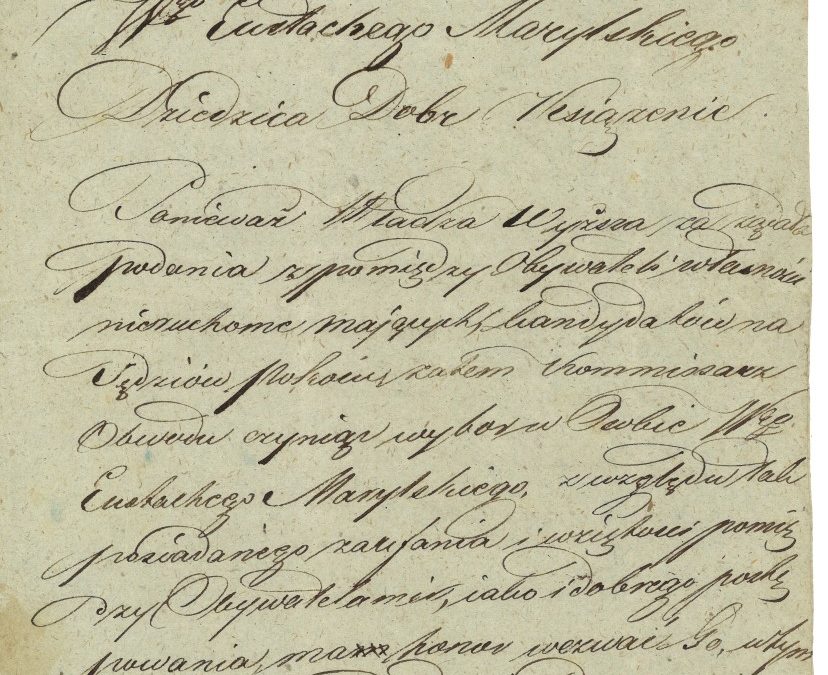 Wgo Eustachego Marylskiego
Dziedzica Dobr Xsiążenic
Ponieważ Władza Wyższa za żądała
podania zpomiędzy Obywateli własności
nieruchome mających, kandydatów na
Sędziów Pokoiu, zatem Kommissarz
Obwodu czyniąc wybor w Osobie Wgo
Eustachego Marylskiego, z względu tak
posiadanego zaufania i wziętości pomię
dzy Obywatelami, iako i dobrego postę
powania, ma honor wezwać Go, w tym